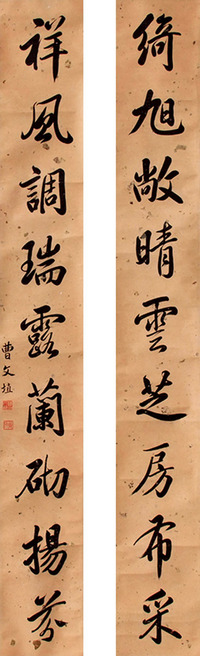 綺旭敞晴雲芝房布采
祥風調瑞露蘭砌揚芬
曹文埴